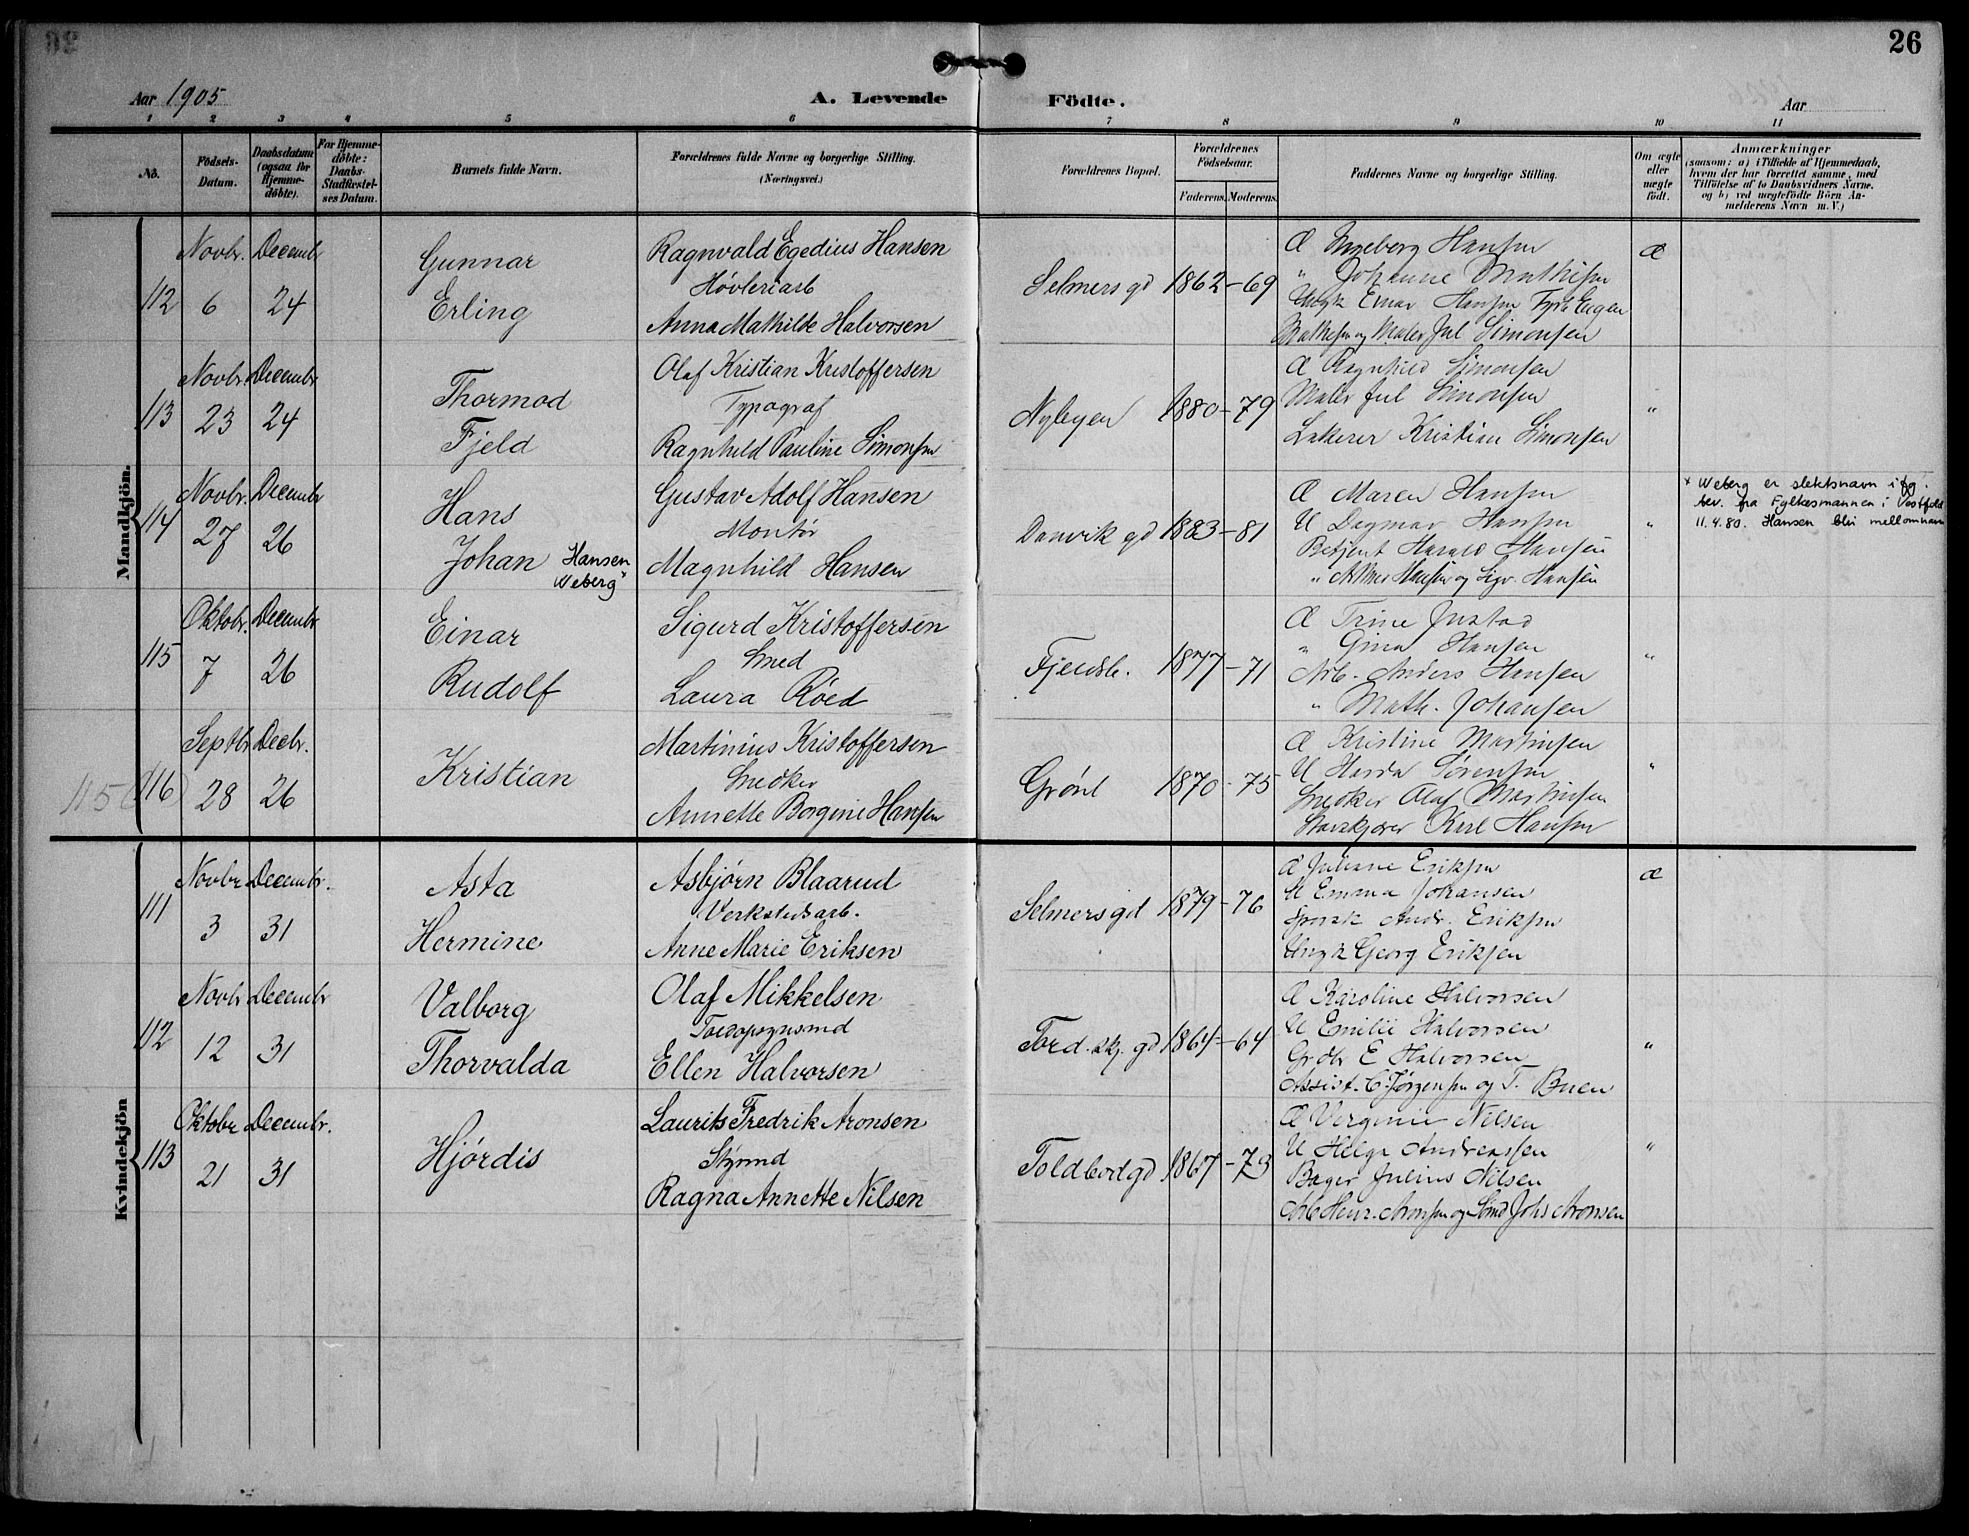 26
Aar 1905
A. Levende Födte.
Aar
1 2 3 4 5 6 7 8 9 10 11
No.
Födsels-Datum.
Daabsdatum (ogsaa for Hjemmedöbte).
For Hjemmedöbte: Daabs-Stadfæstelses Datum.
Barnets fulde Navn.
Forældrenes fulde Navne og borgerlige Stilling. (Næringsvei.)
Forældrenes Bopæl.
Forældrenes Födselsaar.
Faderens. Moderens.
Faddernes Navne og borgerlige Stilling.
Om ægte eller uægte födt.
Anmærkninger
(saasom: a) i Tilfælde af Hjemmedaab,
hvem der har forrettet samme, med
Tilföielse af to Daabsvidners Navne.
og b) ved uægtefödte Börn An-
melderens Navn m. V.)
Mandkjön.
112
Novbr. 6
Decembr 24
Gunnar
Erling
Ragnvald Egedius Hansen
Høvleriarb
Anna Mathilde Halvorsen
Selmers gd
1862-69
Æ Ingeborg Hansen
" Johanne Mathisen
Ungk Einar Hansen
Mathisen og Maler Jul Simonsen
Æ
113
Novbr 23
Decembr 24
Thormod
Fjeld
Olaf Kristian Kristoffersen
Typograf
Ragnhild Pauline Simonsen
Nyløyen
1880-79
Æ Ragnhild Simonsen
Maler Jul Simonsen
Lakerer Kristian Simonsen
"
114
Novbr. 27
Decembr 26
Hans
Johan Hansen
Weberg
Gustav Adolf Hansen
Montör
Magnhild Hansen
Danvik gd
1883-81
Æ Maren Hansen
U Dagmar Hansen
Betjent Harald Hansen
" Hansen og Sigv. Hansen
"
x Weberg er slektsnavn ifg.
bev. fra Fylkesmannen i Vestfold
11.4.80. Hansen blir mellomnavn
115
Oktobr. 7
Decembr 26
Einar
Rudolf
Sigurd Kristoffersen
Smed
Laura Röed
Fjeldsb.
1877-71
Æ Trine Justad
" Gina Hansen
Arb. Anders Hansen
" Math. Johansen
"
115 (116)
Septbr 28
Decbr. 26
Kristian
Martinius Kristoffersen
Snedker
Annette Borgine Hansen
Grönl
1870-75
Æ Kristine Martinsen
U Harda Sørensen
Snedker Olaf Martinsen
Karl Hansen
"
Kvindekjön
111
Novbr 3
Decembr. 31
Asta
Hermine
Asbjørn Blaarud
Verkstedsarb.
Anne Marie Eriksen
Selmers gd
1879-76
Æ Juliane Eriksen
U Emma Johansen
Andr. Eriksen
Ungk Georg Eriksen
Æ
112
Novbr 12
Decembr 31
Valborg
Thorvalda
Olaf Mikkelsen
Toldopsynsmd
Ellen Halvorsen
Tord. skj. gd
1864-64
Æ Karoline Halvorsen
U Emilie Halvorsen
Grdbr E Halvorsen
Assist. C. Jørgensen og T. Buen
"
113
Oktobr 21
Decembr. 31
Hjørdis
Laurits Fredrik Aronsen
Styrmd
Ragna Annette Nilsen
Toldbodgd
1867-73
Æ Verginie Nilsen
U Helga Andreassen
Bager Julius Nilsen
Arb Henr. Aronsen og Sømd Johs Aronsen
"